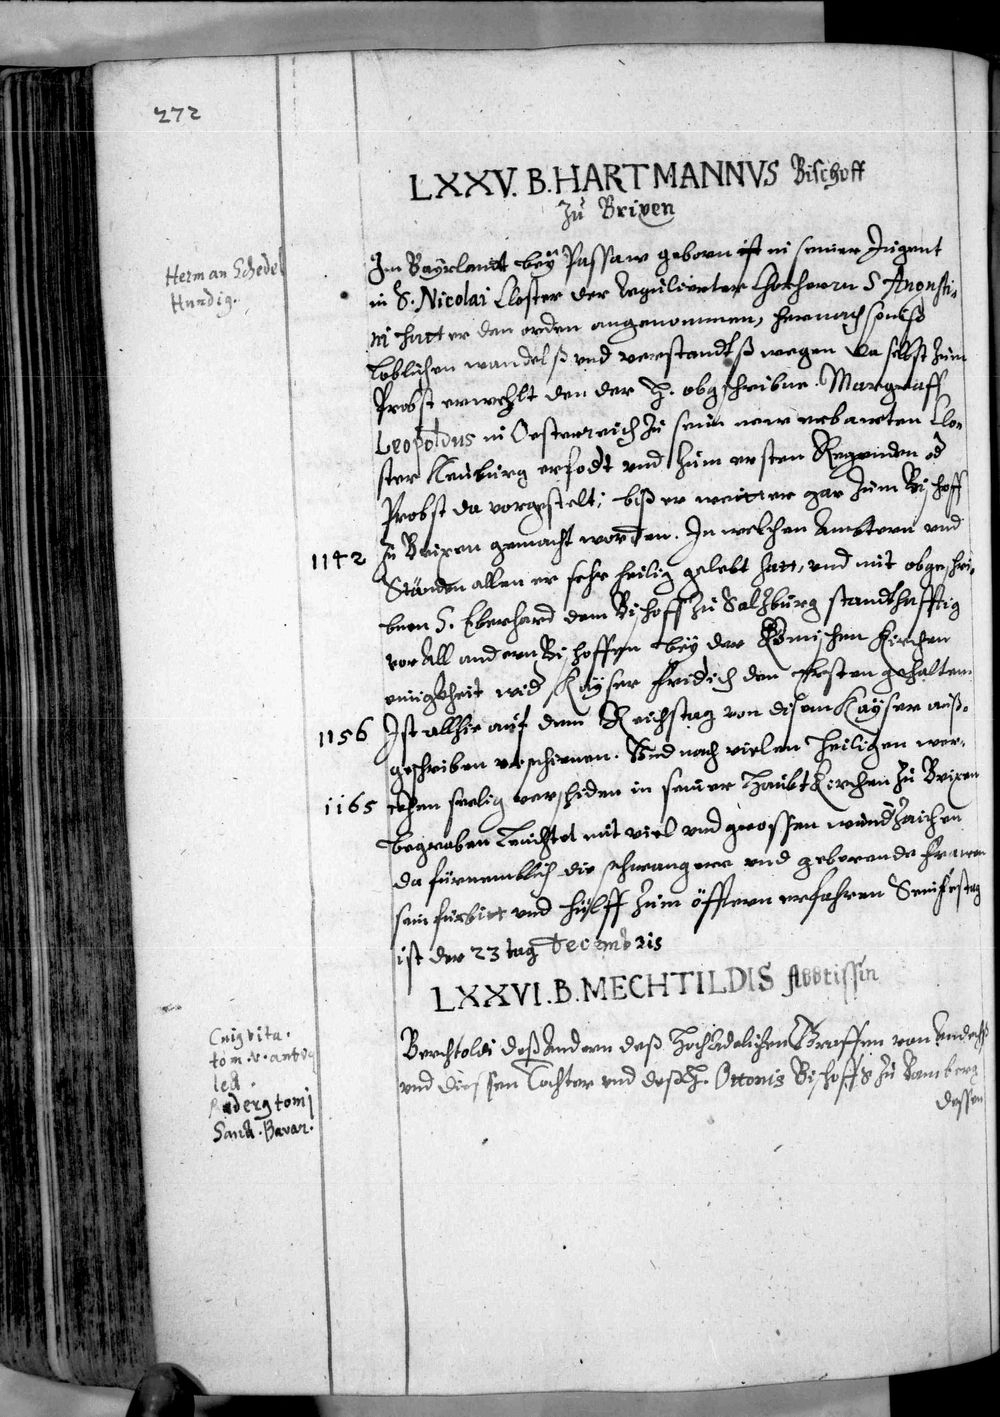 272
LXXV. B. HARTMANNVS Bischoff
Zu Brixen
Herman Schedel
Hundig.
Im Bayrlandt bey Passaw geborn ist in seiner Jugent
in S. Nicolai Closter der Regulierter Chorherrn S Augusti
ni hatt er den orden angenommen, hernach seines
loblichen wandelß und verstandtß wegen da selbst zum
Probst erwehlt den der H. obgschribne Marggraff
Leopoldus in Oesterreich zu seim new erbawten Clo
ster Neuburg erfodt und zum ersten Regenden od
Probst da vorgestelt; biß er weitter gar zum Bischoff
1142 zu Brixen gemacht worden. In welchen Ambtern und
Ständen allen er sehr heilig gelebt hatt, und mit obgeschri
bnen S. Eberhard dem Bischoff zu Saltzburg standthafftig
vor all andern Bischoffen bey der Römischen Kirchen
einigkheit wid Kayser Fridich den Ersten gehalten
1156 Ist allhie auf dem Reichstag von disem Kayser auß
geschriben erschienen. Und nach vielen heiligen wer
1165 cken seelig verschiden in seiner Haubt Kirchen zu Brixen
begraben leuchtet mit viel und grossen wundzaichen
da fürnemblich die schwangere und geberende Frawen
sein fürbitt und hülff zum öfftern erfahren Sein festag
ist der 23 tag Decembris
LXXVI. B. MECHTILDIS Abbtissin
Cnig vita.
tom. v. antiq
led.
Raderg tom j
Sanct. Bavar.
Berchtoldi deß Andern deß Hochadelichen Graffen von Andechß
und Diessen Tochter und deß H. Ottonis Bischoffs zu Bamberg
dessen